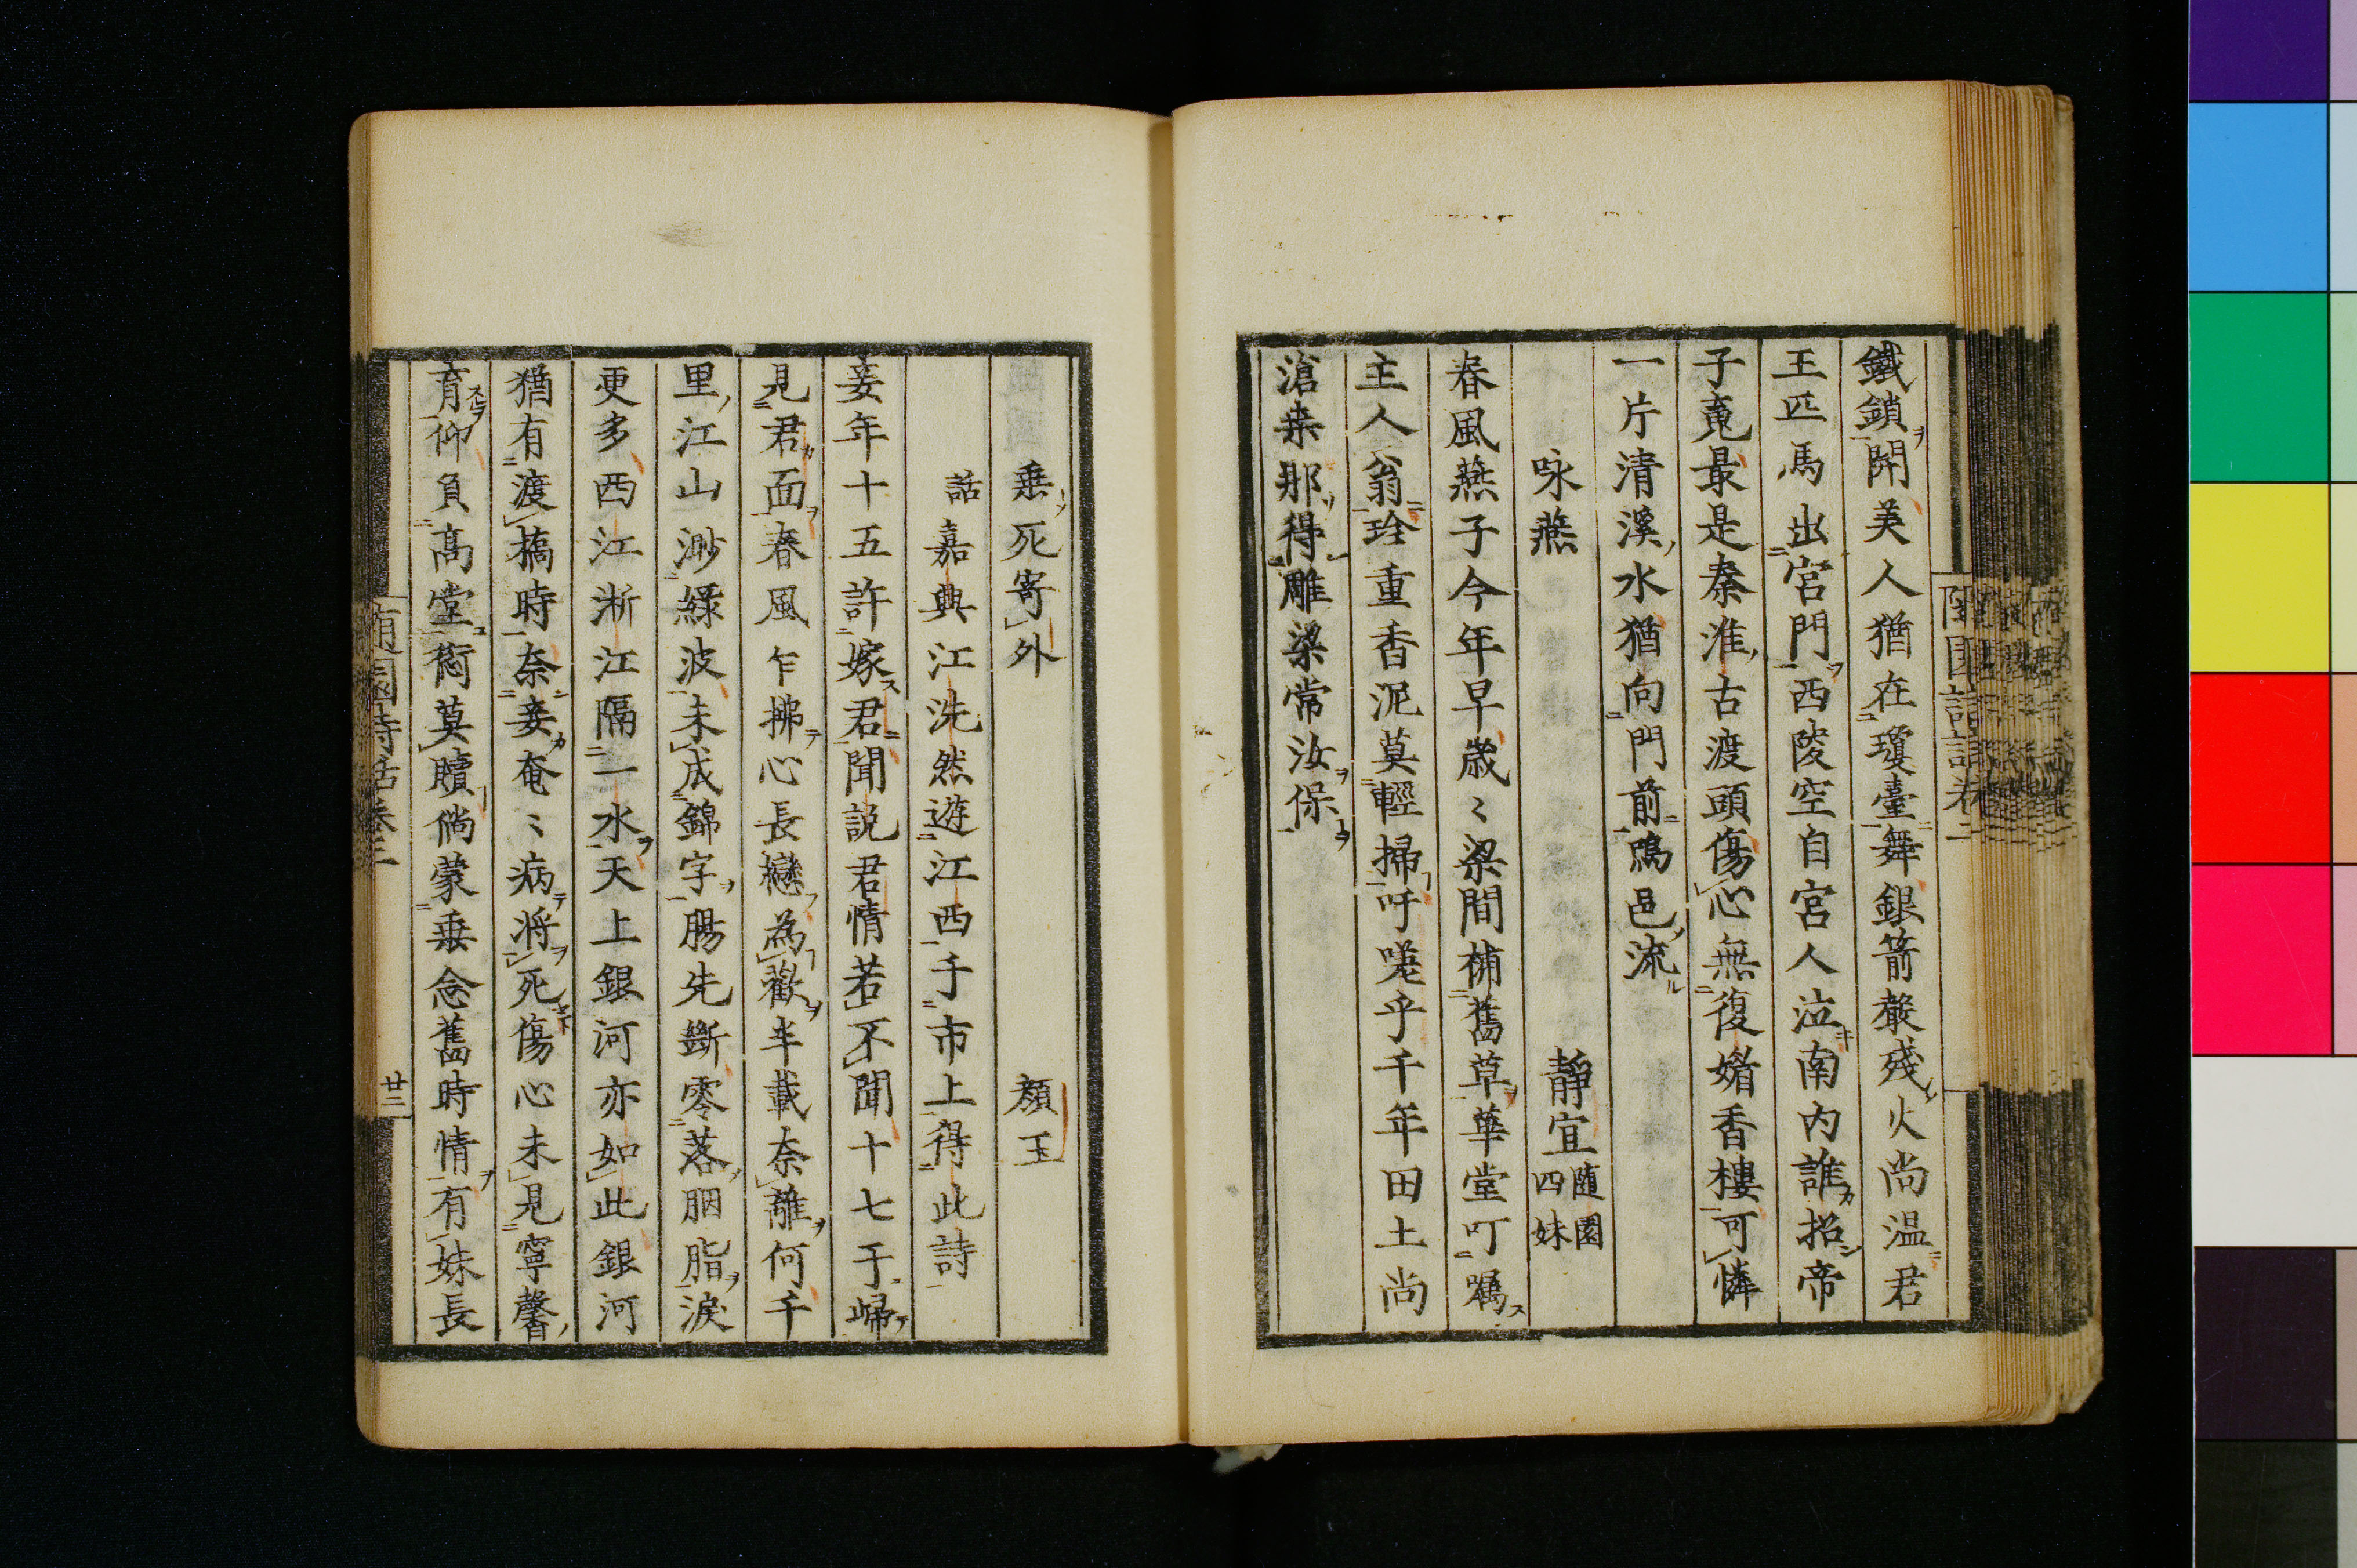 鐵鎖開美人猶在瓊臺舞銀箭嚴殘火尚温君
王匹馬出宮門西陵空自宮人泣南内誰招帝
子䰟最是秦淮古渡頭傷心無復媚香樓可憐
一片清溪水猶向門前嗚邑流
咏燕 靜宜隨園四妹
春風燕子今年早歳〻梁間補舊草華堂叮囑
主人翁珍重香泥莫輕掃吁嗟乎千年田土尚
滄桒那得雕梁常汝保
垂死寄外 顏玉
話嘉興江洗然遊江西于市上得此詩
妾年十五許嫁君聞説君情若不聞十七于歸
見君面春風乍拂心長戀為歡半載奈離何千
里江山渺緑波未成錦字腸先斷零落胭脂淚
更多西江淅江隔一水天上銀河亦如此銀河
猶有渡橋時奈妾奄〻病將死傷心未見寧馨
育仰負髙堂衒莫贖倘蒙垂念舊時情有妹長
隨園詩話卷二
廿三